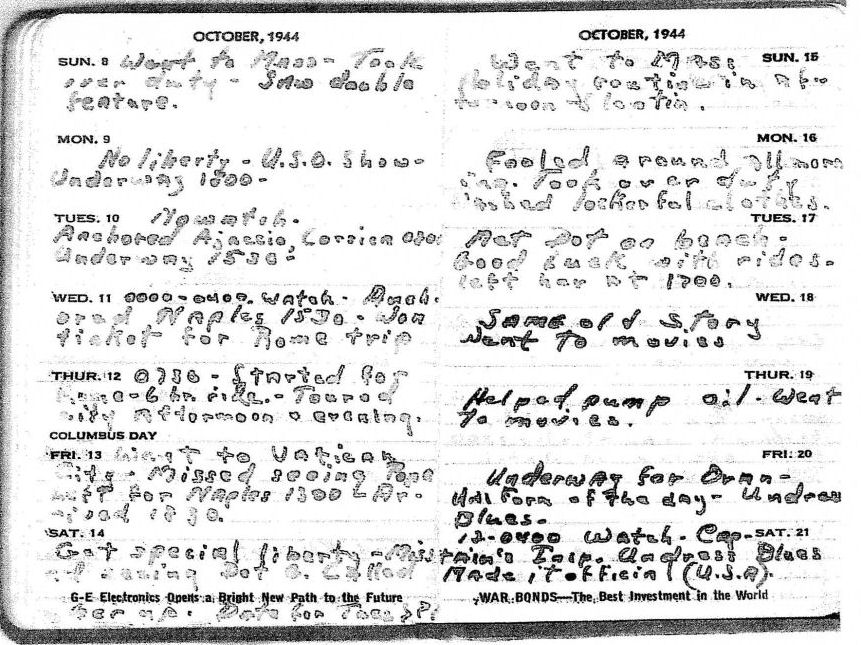 OCTOBER, 1944
SUN. 8 Went to Mass - Took
over duty - Saw double
feature.
MON. 9
No liberty - U.S.O. Show -
Underway 1800 -
TUES. 10 No watch.
Anchored Ajaccio, Corsica
Underway 1530 -
WED. 11 0000-0400. Watch - Anch-
ored Naples 1530 - Won
ticket for Rome trip
THUR. 12 0730 - Started for
Rome - 6 hr. ride. - Toured
city afternoon & evening.
COLUMBUS DAY
FRI. 13 Went to Vatican
City - Missed seeing Pope
Left for Naples 1300 - Ar-
rived 1830.
SAT. 14
Got special liberty - Miss
of seeing Dot O. Called
G-E Electronics Opens a Bright New Path to the Future
her up. Date for Tues??
OCTOBER, 1944
Went to Mass SUN. 15
Holiday routine in af-
ternoon
MON. 16
Fooled around all morn
ing. Took over duty
locker ful clothes.
TUES. 17
Met Dot on beach -
Good luck with rides -
left her at 1700.
WED. 18
Same old story
Went to movies
THUR. 19
Helped pump oil. Went
To movies.
FRI. 20
Underway for Oran -
Uniform of the day - Undress
Blues -
12-0400 Watch. Cap- SAT. 21
tain's Insp. Undress Blues
Made it official (U.S.A).
WAR BONDS—The Best Investment in the World